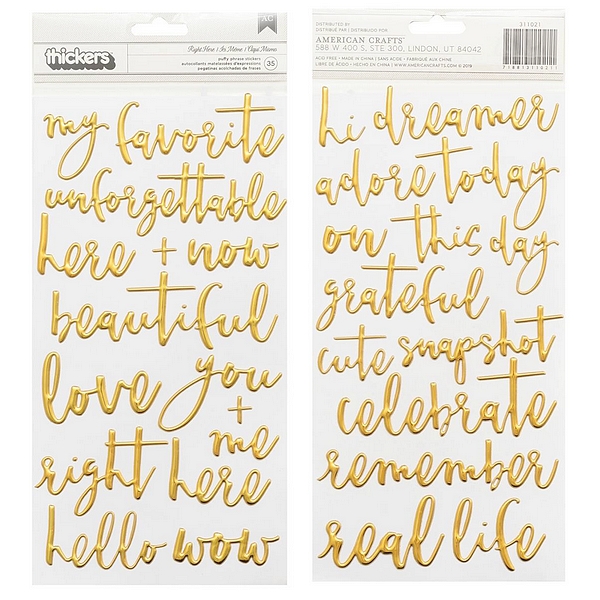 AC
Right Here / Ici Même / Aquí Mismo
thickers
puffy phrase stickers
autocollants matelassées d'expressions
pegatinas acolchadas de frases
35
my favorite
unforgettable
here + now
beautiful
love you
+ me
right here
hello wow
DISTRIBUTED BY
DISTRIBUÉ PAR / DISTRIBUIDO POR
311021
AMERICAN CRAFTS
588 W 400 S, STE 300, LINDON, UT 84042
ACID FREE • MADE IN CHINA / SANS ACIDE • FABRIQUÉ AUX CHINE
LIBRE DE ÁCIDO • HECHO EN CHINA / ©AMERICANCRAFTS.COM © 2019
hi dreamer
adore today
on this day
grateful
cute snapshot
celebrate
remember
real life